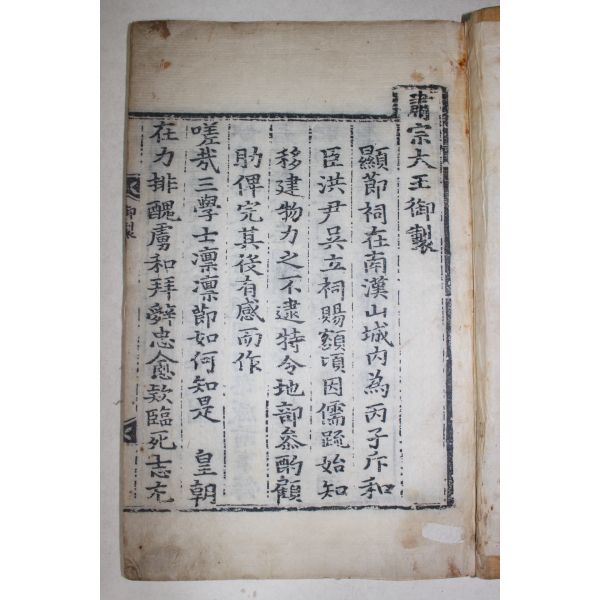 肅宗大王御製
顯節祠在南漢山城內為丙子斥和
臣洪尹吳立祠賜額頃因儒䟽始知
移建物力之不逮特令地部叅酌顧
助俾完其役有感而作
嗟哉三學士凜凜節如何知是 皇朝
在力排醜虜和拜辭忠愈欵臨死志尤
御製